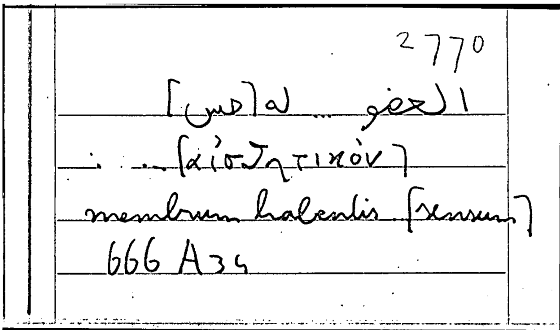 2770
العضو ... له [حس]
. .. [αἰσθητικόν]
membrum habentis [sensum]
666 A34